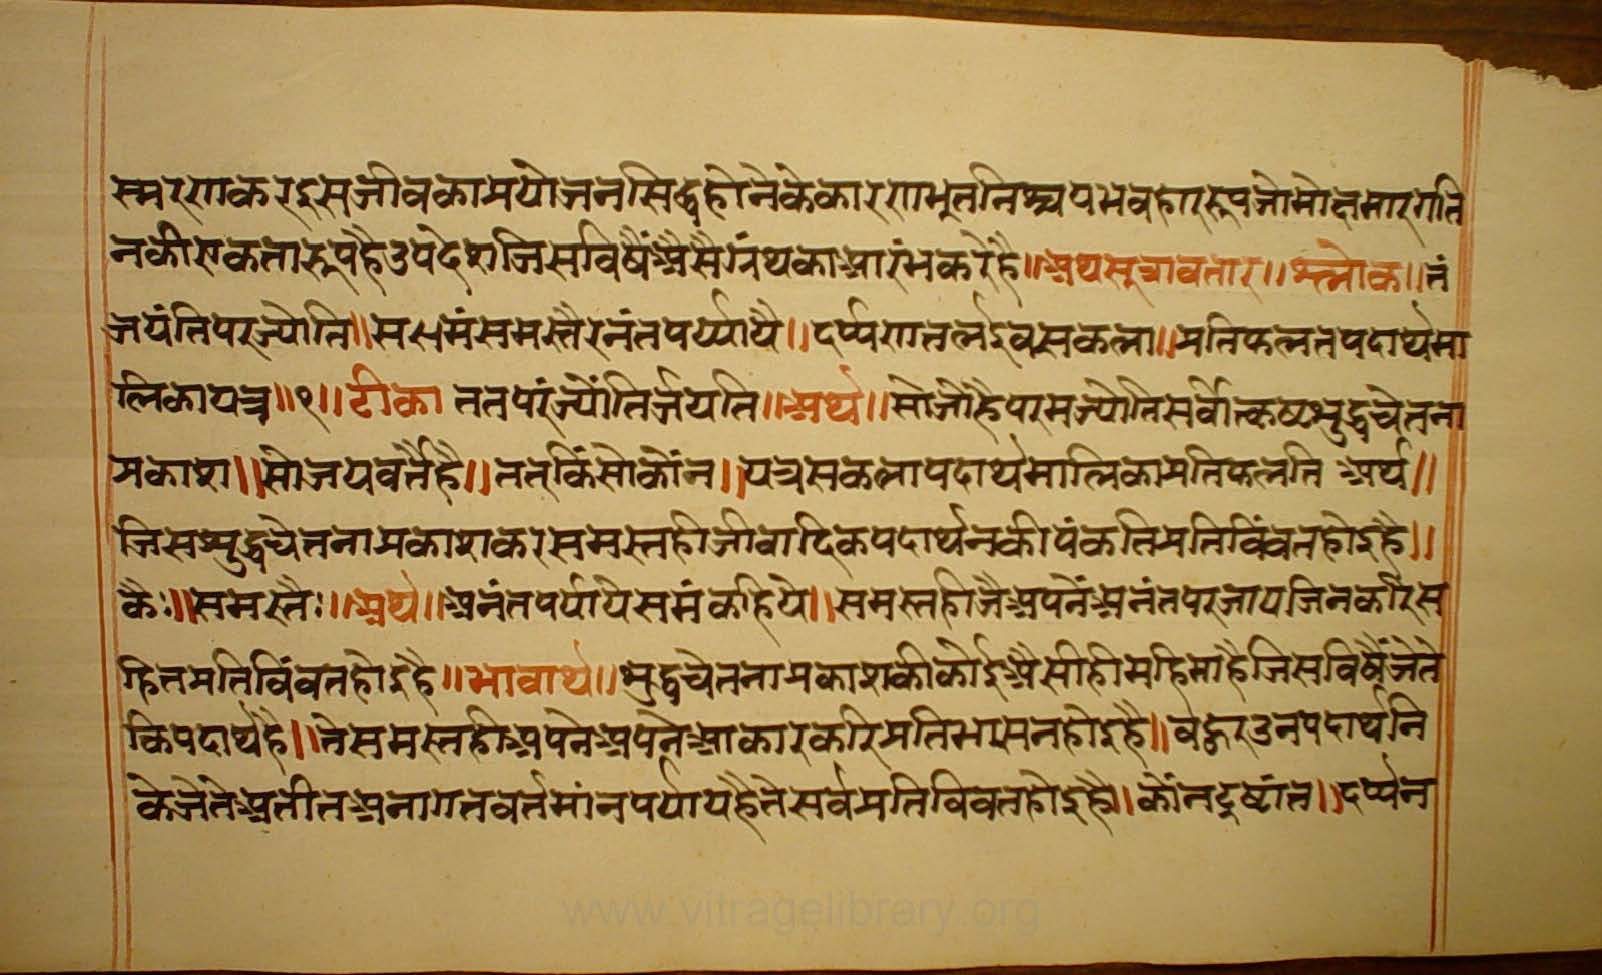 स्मरणकरइसजीवकाप्रयोजनसिद्धहोनेकेकारणभूतनिश्चयभवहाररूपजोमोक्षमारगति
नकीएकतारूपहैउपदेशजिसविषैंअैसैग्रंथकाप्रारंभकरेहै॥अथसूत्रावतार॥श्लोक॥तं
जयंतिपरज्योति॥समंसमस्तैरनंतपर्य्यायै॥दर्प्पणतलइवसकला॥प्रतिफलतपदार्थमा
लिकायत्र॥१॥टीका ततपरंज्योंतिर्जयति॥अर्थ॥सोजोहैपरमज्योतिसर्वोत्कष्टशुद्धचेतना
प्रकाश॥सोजयवर्तैहै॥ततकिंसोकोंन॥यत्रसकलापदार्थमालिकाप्रतिफलति अर्थ॥
जिसशुद्धचेतनाप्रकाशकरसमस्तहीजीवादिकपदार्थनकीपंकतिप्रतिविंवतहोइहै॥
कैः॥समस्तैः॥अर्थ॥अनंतपर्यायेसमंकहिये॥समस्तहीजैअपनेंअनंतपरजायजिनकरिस
हितप्रतिविंवतहोइहै॥भावार्थ॥शुद्धचेतनाप्रकाशकीकोईअैसीहीमहिमाहैजिसविषैंजेते
किपदार्थहै॥तेसमस्तहीअपनेअपनेआकारकरिप्रतिभासनहोइहै॥वहुरउनपदार्थनि
केजेतेअतीतअनागतवर्तमांनपर्यायहैतेसर्वप्रतिविवतहोइहै।कोंनदृष्टांत॥दर्प्पन
www.vitragelibrary.org